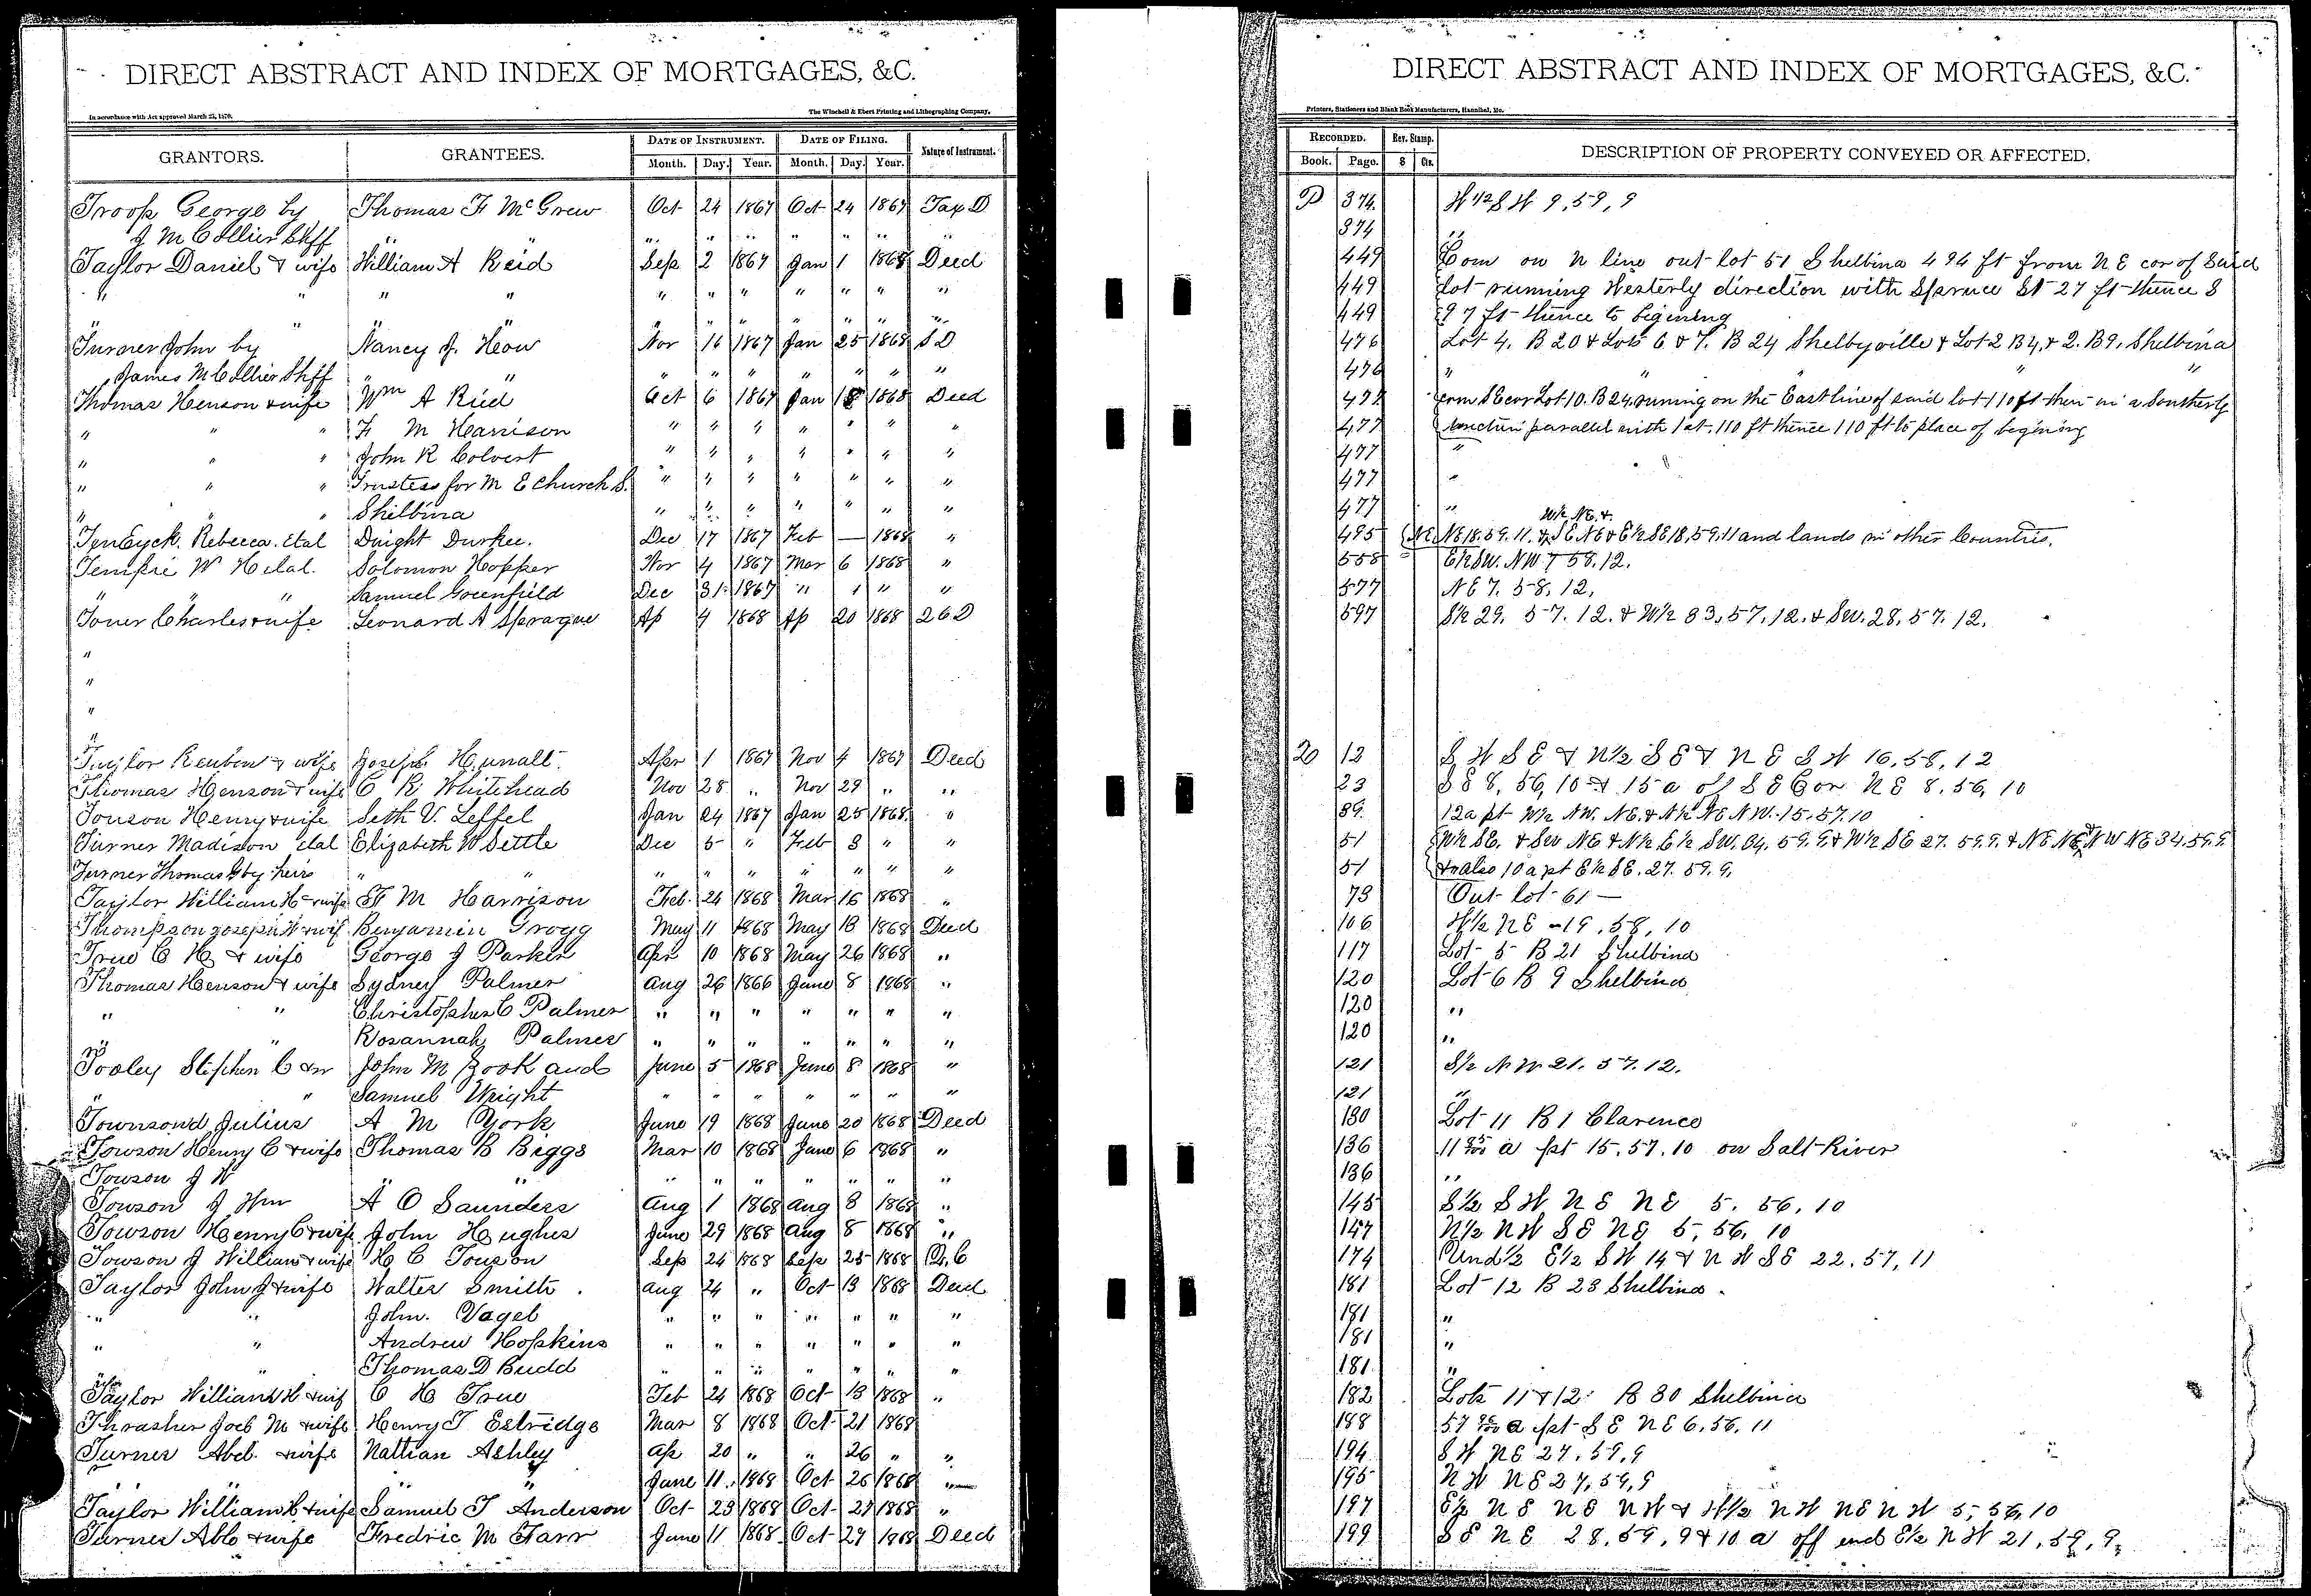 DIRECT ABSTRACT AND INDEX OF MORTGAGES, &C.
In accordance with Act approved March 25, 1870.
The Winchell & Ebert Printing and Lithographing Company,
GRANTORS. GRANTEES. DATE OF INSTRUMENT. DATE OF FILING. Nature of Instrument.
Month. Day. Year. Month. Day. Year.
Troop George by Thomas F McGrew Oct 24 1867 Oct 24 1867 Tax D
J M Collier Shff " " " " " " " "
Taylor Daniel & wife William A Reid Sep 2 1867 Jan 1 1868 Deed
" " " " " " " " " " "
" " " " " " " " " "
Turner John by Nancy J. Heow Nov 16 1867 Jan 25 1868 S D
James M Collier Shff " " " " " " " " "
Thomas Henson & wife Wm A Reid Oct 6 1867 Jan 18 1868 Deed
" " " F M Harrison " " " " " " "
" " " John R Colvert " " " " " " "
" " " Trustees for M E Church S. " " " " " " "
" " " Shelbina " " " " " " "
TenEyck. Rebecca. Etal Dwight Durkee. Dec 17 1867 Feb — 1868 "
Tempie W H etal. Solomon Hopper Nov 4 1867 Mar 6 1868 "
" " Samuel Greenfield Dec 31 1867 " " " "
Toner Charles & wife Leonard A Sprague Ap 4 1868 Ap 20 1868 262
"
"
"
"
Taylor Reuben & wife Joseph Hunalt. Apr 1 1867 Nov 4 1867 Deed
Thomas Henson & wife C R Whitehead Nov 28 " Nov 29 " "
Touson Henry & wife Seth V. Leffel Jan 24 1867 Jan 25 1868 "
Turner Madison etal Elizabeth W Settle Dec 5 " Feb 8 " "
Turner Thomas G by heirs " " " " " " " " "
Taylor William H & wife F M Harrison Feb. 24 1868 Mar 16 1868 "
Thompson Joseph H & wif Benjamin Grogg May 11 1868 May 18 1868 Deed
True C H & wife George J Parker Apr 10 1868 May 26 1868 "
Thomas Henson & wife Sydney Palmer Aug 26 1866 June 8 1868 "
" " Christopher C Palmer " " " " " " "
" " Rosannah Palmer " " " " " " "
Pooley Stephen C & w John M Zook and June 5 1868 June 8 1868 "
" " Samuel Wright " " " " " " "
Townsond Julius A M York June 19 1868 June 20 1868 Deed
Towson Henry C & wife Thomas B Biggs Mar 10 1868 June 6 1868 "
Towson J W " " " " " " " "
Towson J Wm A O Saunders Aug 1 1868 Aug 8 1868 "
Towson Henry C & wife John Hughes June 29 1868 Aug 8 1868 "
Towson J William & wife H C Touson Sep 24 1868 Sep 25 1868 Q.C
Taylor John J & wife Walter Smith. Aug 24 " Oct 13 1868 Deed
" " John. Vagel " " " " " " "
" " Andrew Hopkins " " " " " " "
" " Thomas D Budd " " " " " " "
Taylor William H & wif C H True Feb 24 1868 Oct 13 1868 "
Thrasher Joel M & wife Henry T Estridge Mar 8 1868 Oct 21 1868
Turner Abel. & wife Nathan Ashley Ap 20 " " 26 " "
" " " " June 11 1868 Oct 26 1868 "
Taylor William C & wife Samuel T Anderson Oct 23 1868 Oct 27 1868 "
Turner Able & wife Fredric M Tarr June 11 1868 Oct 29 1868 Deed
DIRECT ABSTRACT AND INDEX OF MORTGAGES, &C.
Printers, Stationers and Blank Book Manufacturers, Hannibal, Mo.
RECORDED. Rev. Stamp. DESCRIPTION OF PROPERTY CONVEYED OR AFFECTED.
Book. Page. $ Cts.
P 374. W 1/2 S W 9, 59, 9
374 "
449 Com on N line out lot 51 Shelbina 494 ft from N E cor of Said
449 Lot running Westerly direction with Spruce St 27 ft thence S
449 97 ft thence to begining
476 Lot 4. B 20 & Lots 6 & 7. B 24 Shelbyville & Lot 2 B 4, & 2. B 9. Shelbina
476 " " " "
477 com SE cor Lot 10. B 24 runing on the East line of said lot 110 ft then in a Southerly
477 direction parallel with lot. 110 ft thence 110 ft to place of begining
477 "
477 "
477 "
W½ NE. &
495 NE NE 18. 59. 11. & SE NE & E½ SE 18, 59. 11 and lands in other Counties.
558 E½ SW. NW 7 58. 12.
577 NE 7. 58. 12.
597 S½ 29. 57. 12. & W½ 33. 57. 12. & SW. 28. 57. 12.
20 12 S W S E & N½ S E & N E S W 16, 58, 12
23 S E 8, 56, 10 & 15 a off S E Cor N E 8. 56, 10
39. 12a pt W½ NW. NE. & N½ NE NW. 15. 57. 10
51 W½ SE. & SW NE & N½ E½ SW. 34. 59. 9. & W½ SE 27. 59. 9. & NE NE & NW NE 34. 59. 9.
51 & also 10 a pt E½ SE. 27. 59. 9.
73 Out lot 61 —
106 W½ N E 19, 58, 10
117 Lot 5 B 21 Shelbina
120 Lot 6 B 9 Shelbina
120 "
120 "
121 S½ N W 21. 57. 12.
121 "
130 Lot 11 B 1 Clarence
136 11 a pt 15. 57. 10 on Salt River
136 "
145 S½ S W N E N E 5. 56. 10
147 N½ N W S E N E 5, 56, 10
174 Und ½ E½ S W 14 & N W S E 22. 57, 11
181 Lot 12 B 23 Shelbina.
181 "
181 "
181. "
182 Lots 11 & 12 B 30 Shelbina
188 57 a pt S E N E 6. 56. 11
194 S W N E 27. 59. 9
195 N W N E 27, 59, 9
197 E½ N E N E N W & W½ N W N E N W 5, 56, 10
199 S E N E 28. 59. 9 & 10 a off end E½ N W 21, 59, 9